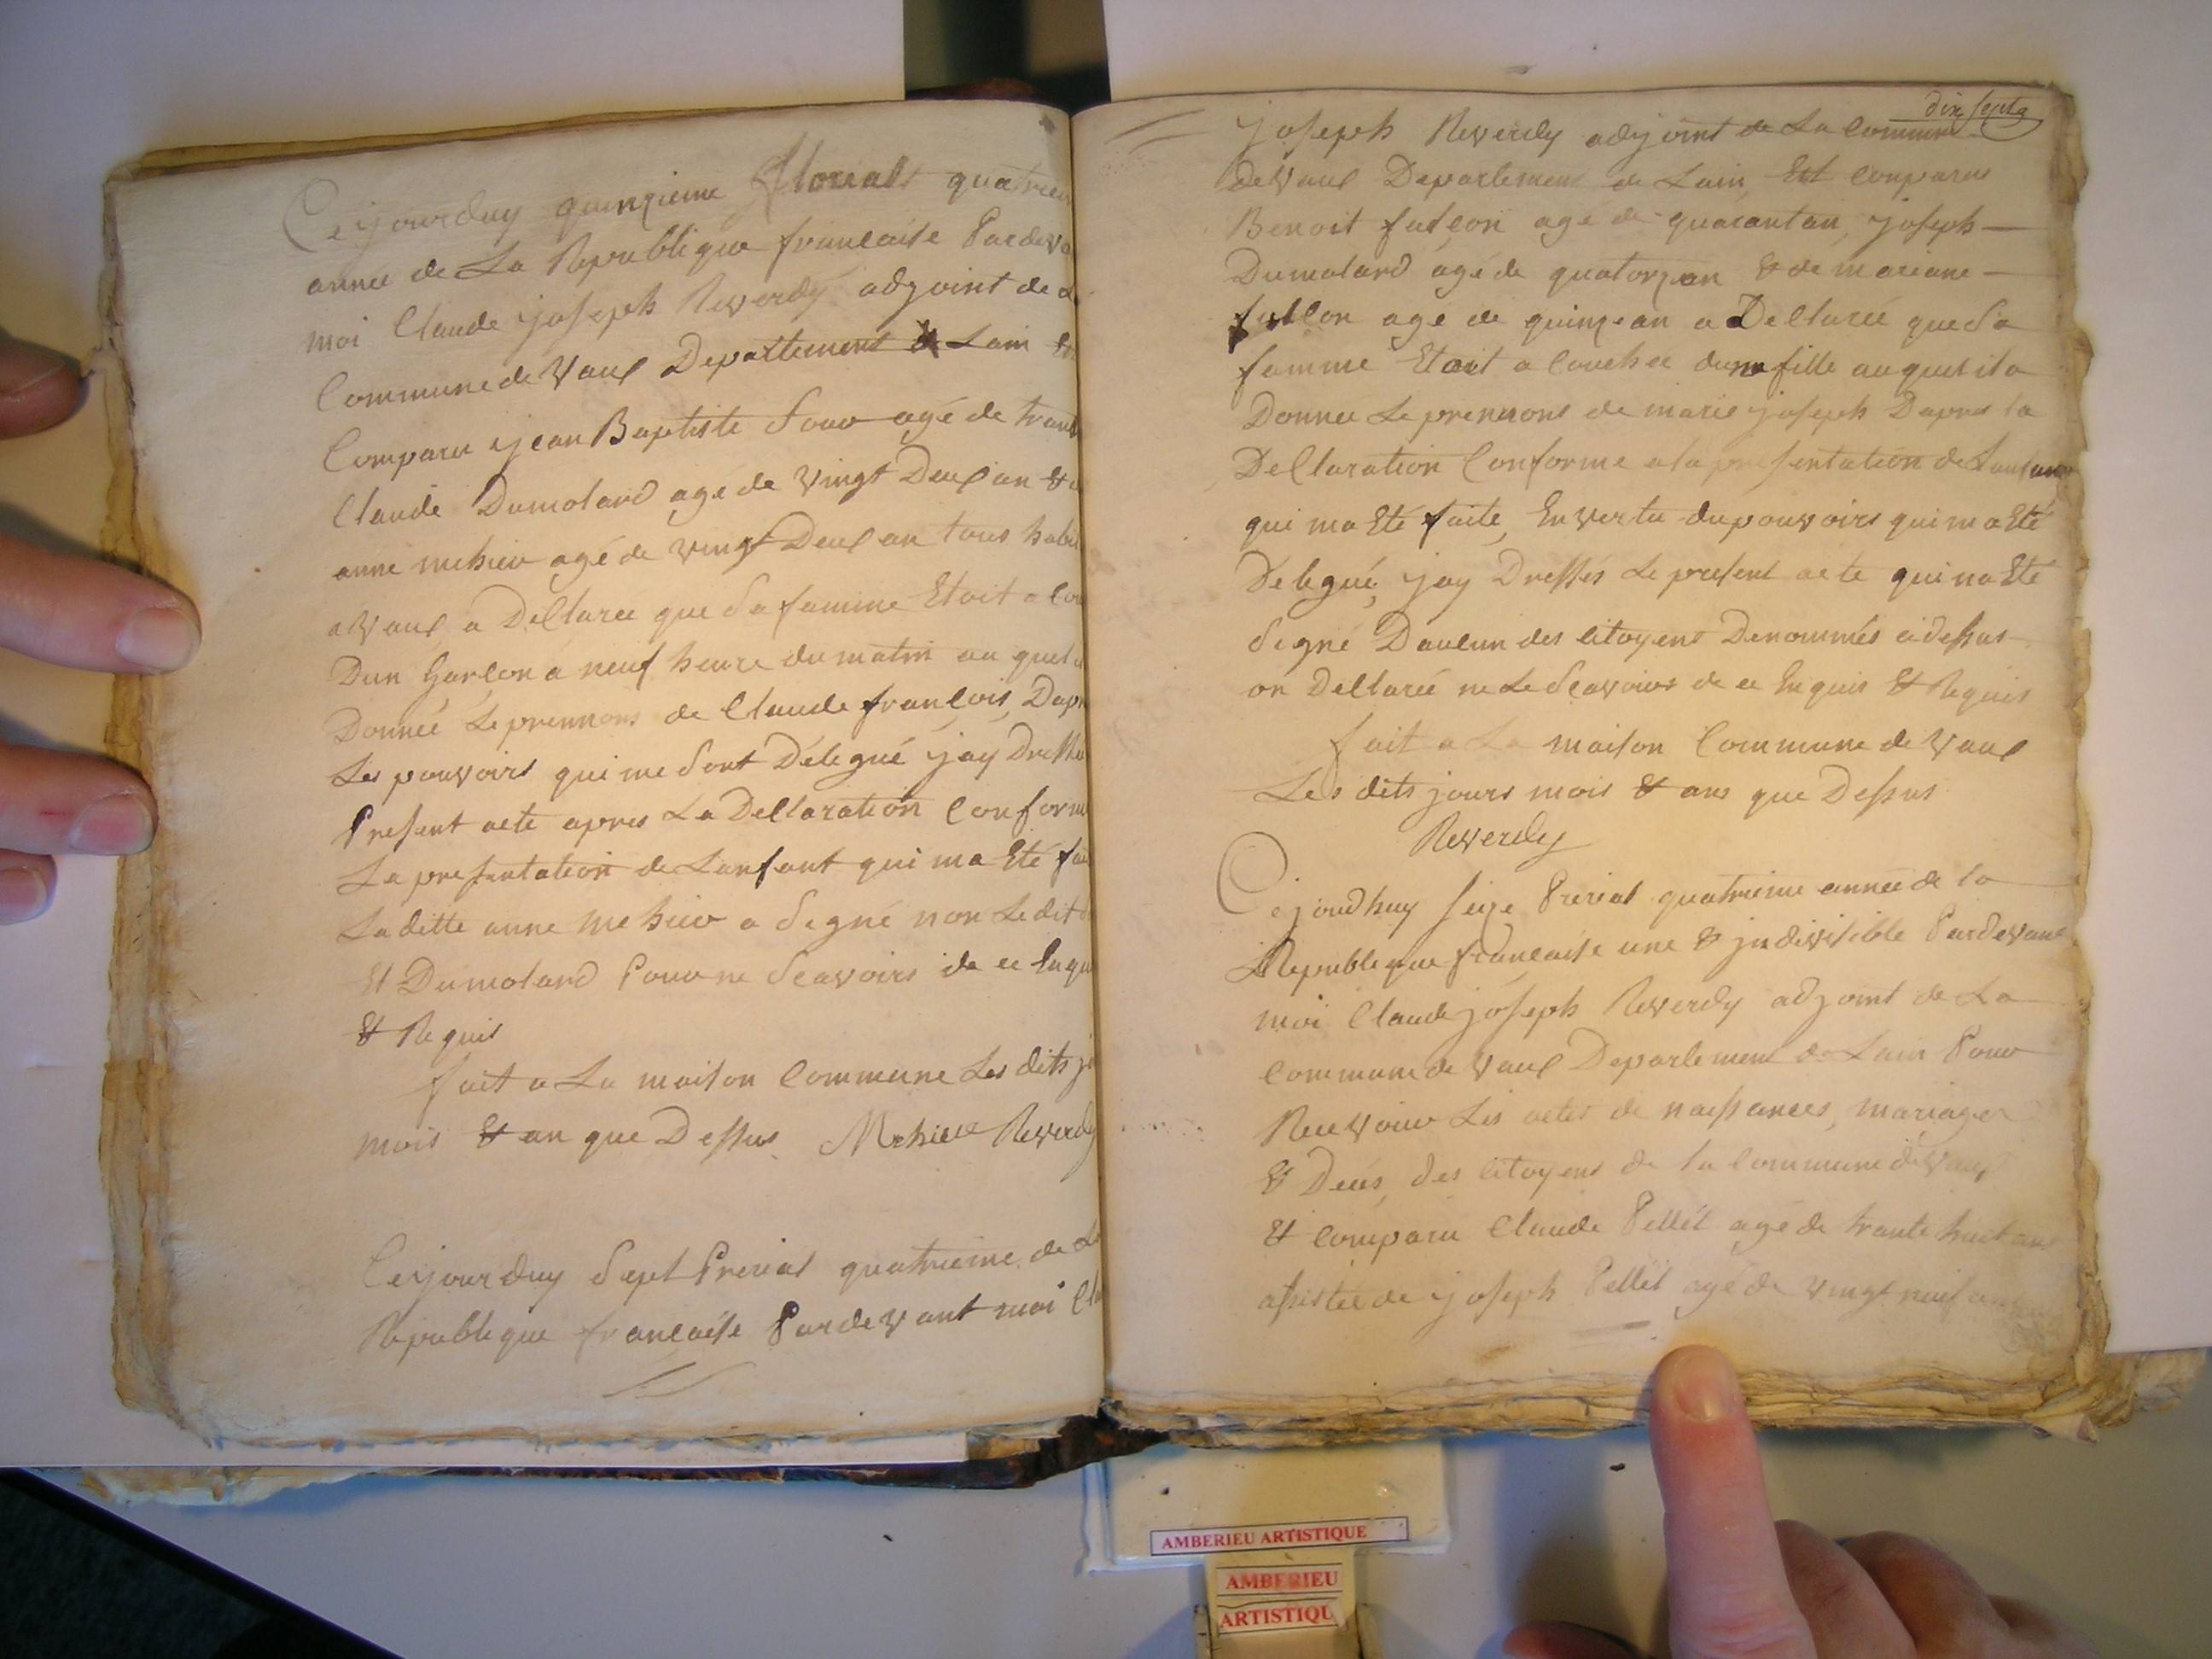 Cejourduy quinzieme Floreal quatriem
année de La Republique francaise Pardeva
moi Claude joseph Reverdy adjoint de L
Commune de Vaux Departement de Lain Et
Comparu jean Baptiste Sour agé de trant
Claude Dumolard agé de vingt Deux an &
anne mehier agé de vingt Deux an tous habi
a Vaux a Declaree que Sa famme Etoit a cou
Dun Garcon a neuf heure du matin au quel
Donnée Le prennons de Claude francois, Dapr
Les pouvoirs qui me Sont Délegué jay Dresse
Present acte apres La Declaration Conform
La presentation de Lanfant qui ma Eté fai
La ditte anne mehier a Segné non Le dit
Et Dumolard Pour ne Scavoirs de ce Enqu
& Requis
fait a La maison Commune Les dits j
mois & an que Dessus Mehier Reverdy
Cejourduy Sept Prerial quatrieme de L
Republique francaise Pardevant moi Cla
dix septe
joseph Reverdy adjoint de La Commune
de Vaux Departement de Lain Est comparus
Benoit falcon agé de quarantan, joseph
Dumolard agé de quatorzan & de mariane
falcon agé de quinzean a Declarée que Sa
famme Etoit a couchee dune fille au quel il a
Donnée Le prennons de marie joseph Dapres la
Declaration Conforme a la presentation de Lanfant
qui ma Eté faite, En vertu du pouvoirs qui ma Eté
Délegué, jay Dressés Le present acte qui na Eté
Segné Daucun des citoyens Denommés ci dessus
on Declarée ne Le Scavoir de ce Enquis & Requis
fait a La maison Commune de Vaux
Les dits jours mois & ans que Dessus
Reverdy
Cejoudhuy seize Prerial quatrieme année de la
Republique francaise une & jndivisible Pardevant
moi Claude joseph Reverdy adjoint de La
Commune de Vaux Departement de Lain Pour
Recevoir Les actes de naissances, mariages
& Deces, des citoyens de la Commune de Vaux
& comparu Claude Pellet agé de trante huit ans
assistée de joseph Pellet agé de vingt neuf
AMBERIEU ARTISTIQUE
AMBERIEU
ARTISTIQU